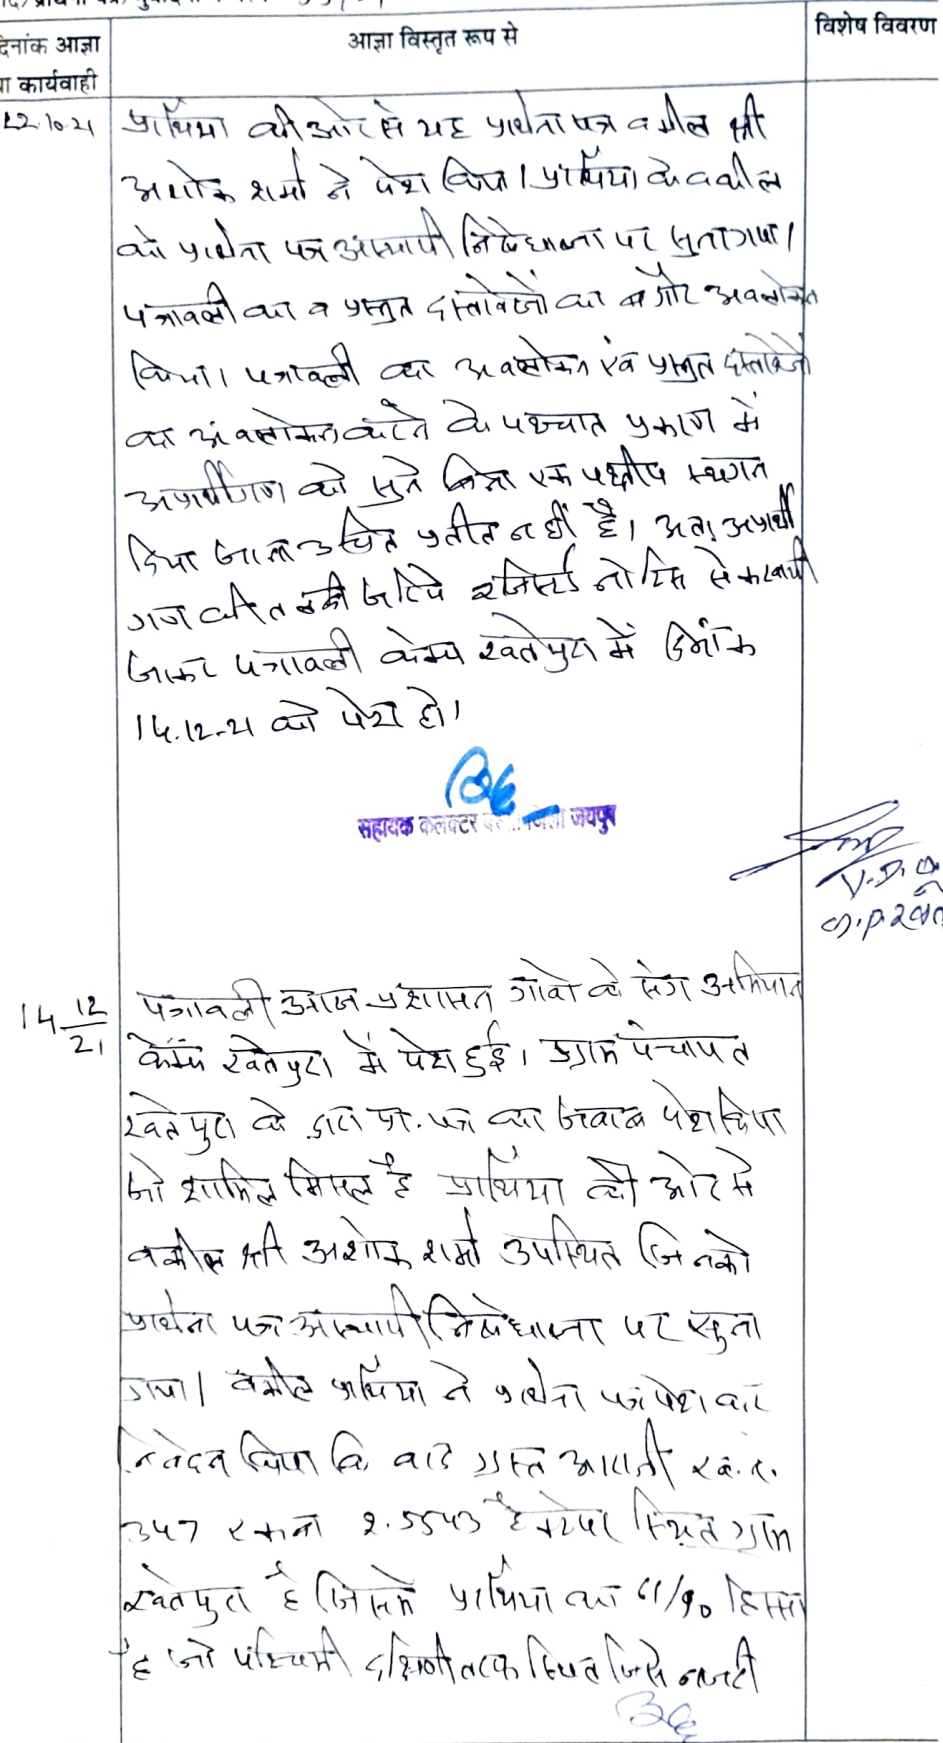 दिनांक आज्ञा
या कार्यवाही
आज्ञा विस्तृत रूप से
विशेष विवरण
22.10.21
प्रार्थिया की ओर से यह प्रार्थना पत्र वकील श्री
अशोक शर्मा ने पेश किया। प्रार्थिया के वकील
को प्रार्थना पत्र अस्थायी निषेधाज्ञा पर सुना गया।
पत्रावली का व प्रस्तुत दस्तावेजों का व गौर अवलोकन
किया। पत्रावली का अवलोकन एवं प्रस्तुत दस्तावेजों
का अवलोकन करने के पश्चात प्रकरण में
अप्रार्थीगण को सुने बिना एक पक्षीय स्थगन
दिया जाना उचित प्रतीत नहीं है। अतः अप्रार्थी
गण की तलबी जरिये रजिस्टर्ड नोटिस से करवायी
जाकर पत्रावली केम्प रवतेपुरा में दिनांक
14.12.21 को पेश हो।
सहायक कलक्टर जिला जयपुर
V.D.O
14 12/21
पत्रावली आज प्रशासन गांवो के संग अभियान
केम्प रवतेपुरा में पेश हुई। ग्राम पंचायत
रवतेपुरा के द्वारा प्रा. पत्र का जवाब पेश किया
जो शामिल मिसल है प्रार्थिया की ओर से
वकील श्री अशोक शर्मा उपस्थित जिनको
प्रार्थना पत्र अस्थायी निषेधाज्ञा पर सुना
गया। वकील प्रार्थिया ने प्रार्थना पत्र पेश कर
निवेदन किया कि वाद ग्रस्त आराजी ख.न.
347 रकबा 2.5543 हैक्टेयर स्थित ग्राम
रवतेपुरा है जिसमें प्रार्थिया का हिस्सा
है जो पश्चिमी दक्षिणी तरफ स्थित जिसे नजरी